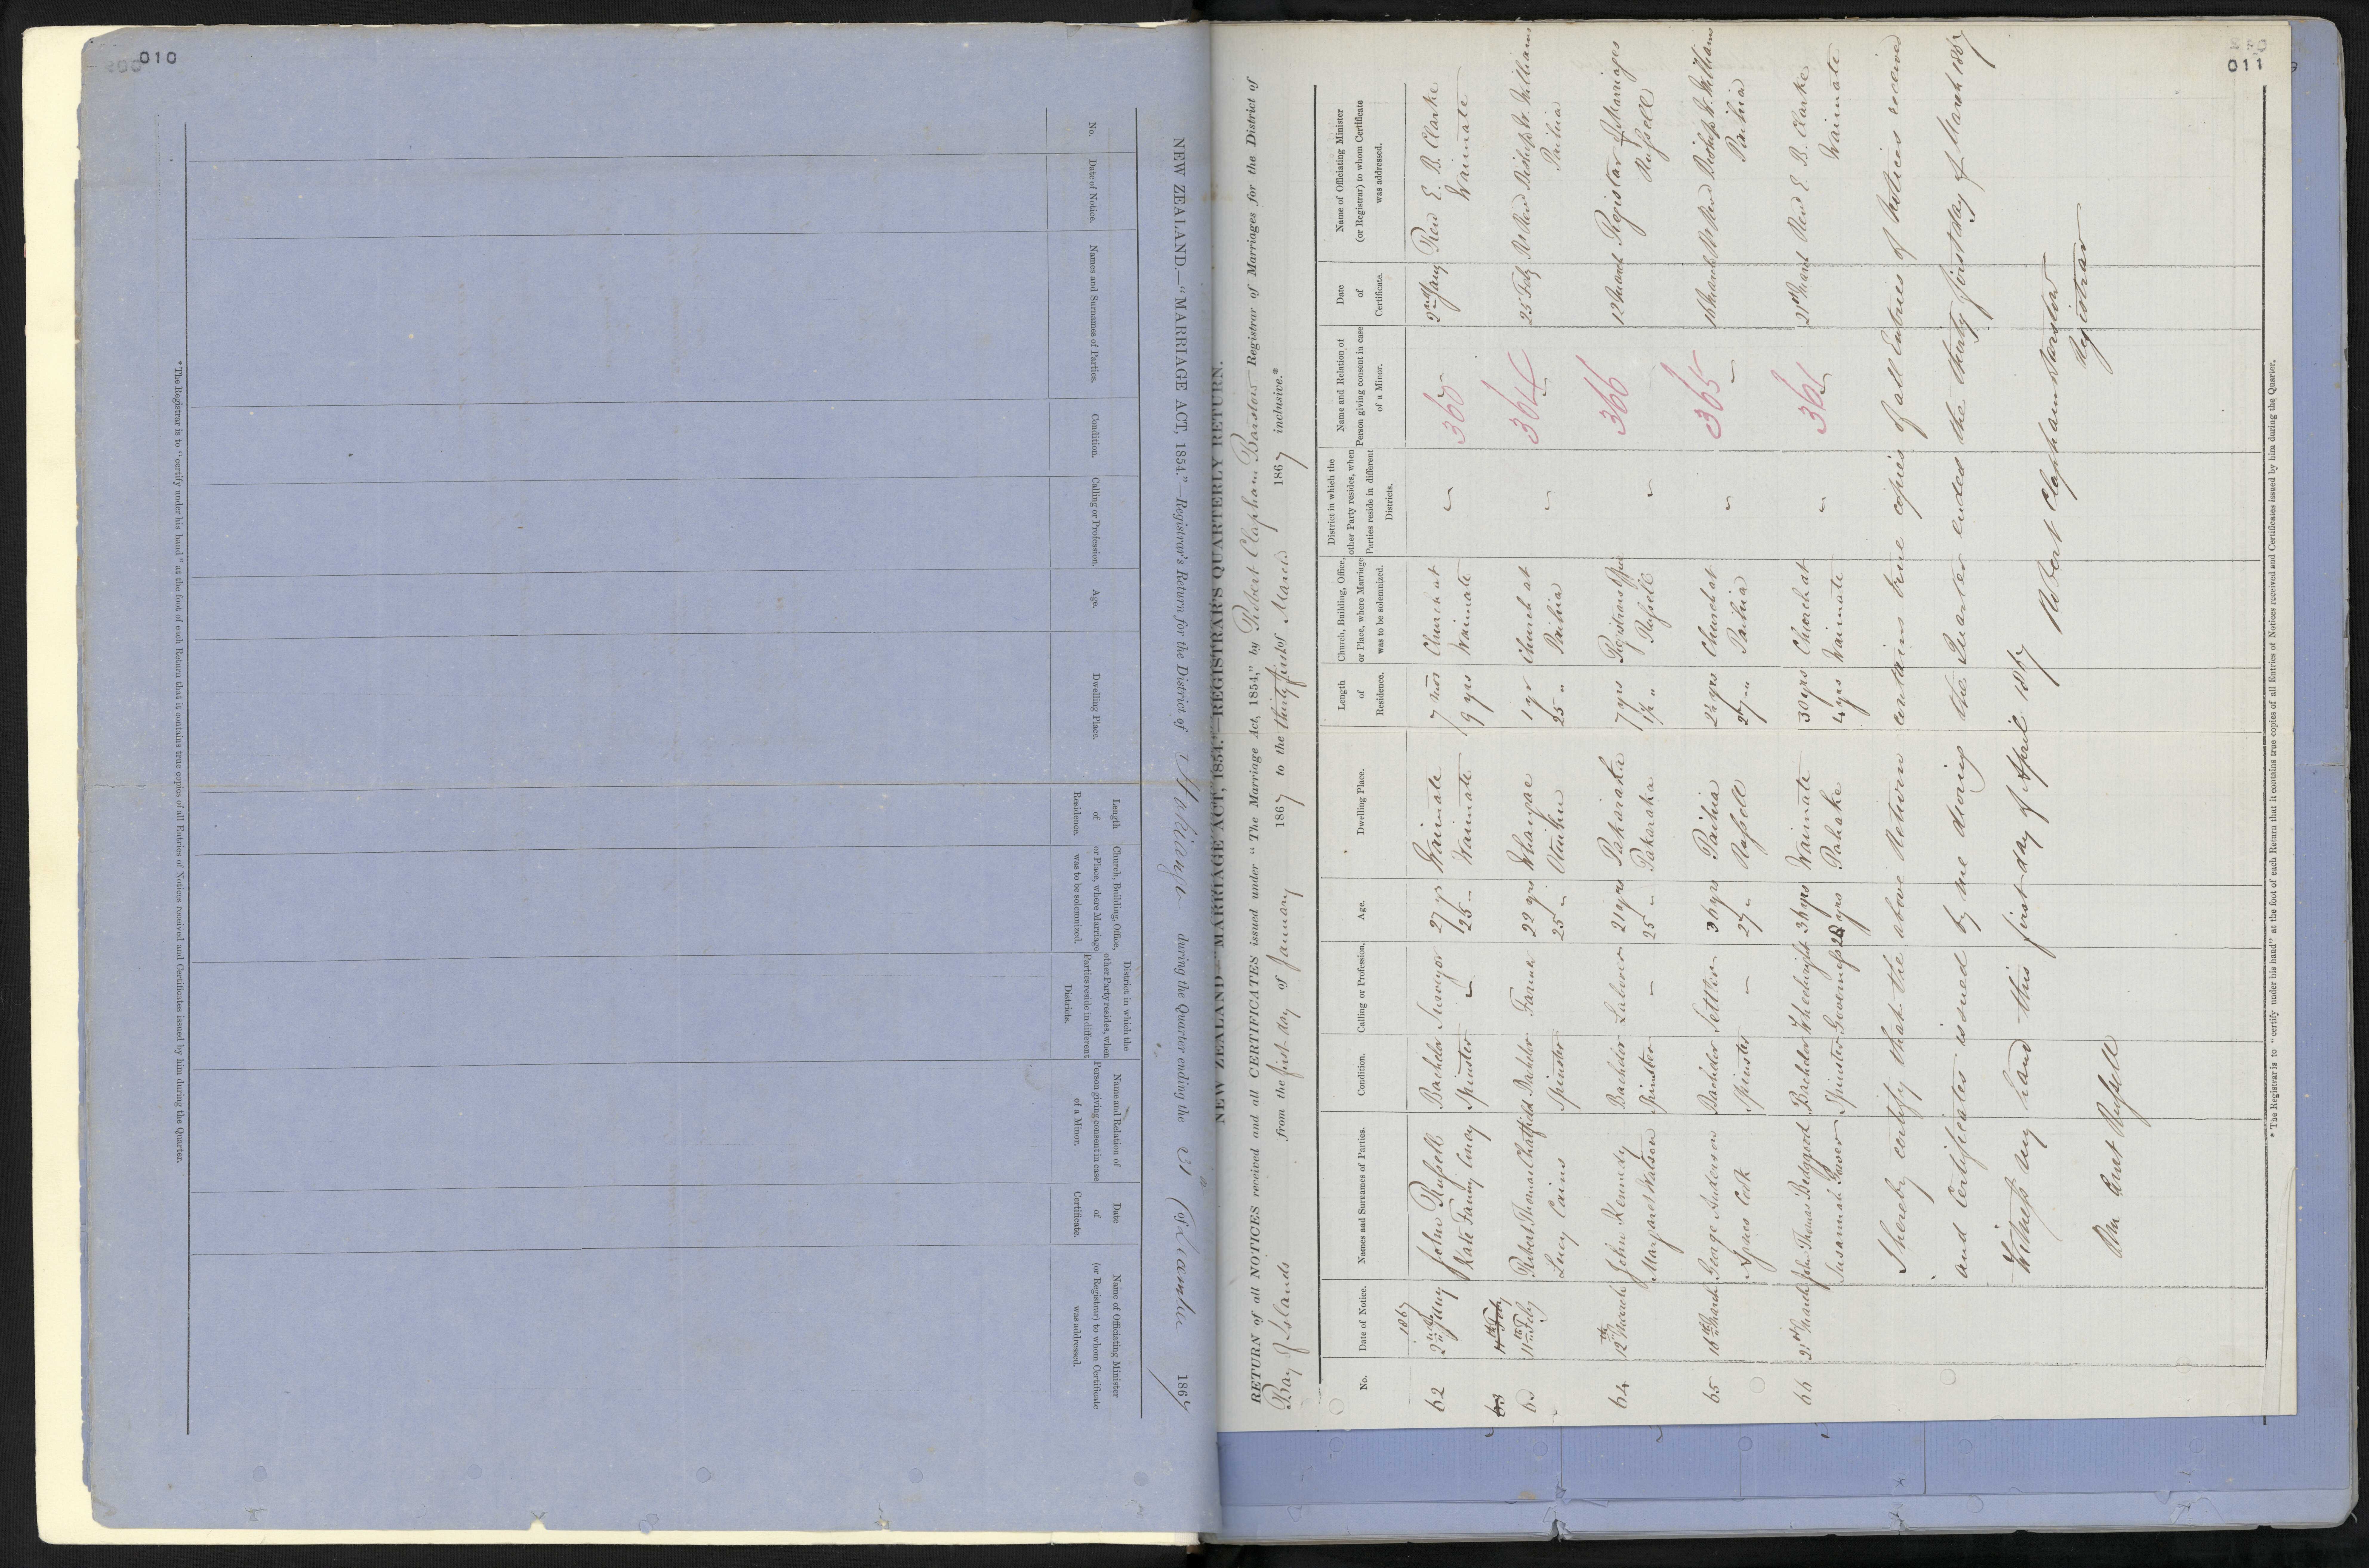 010
NEW ZEALAND.—"MARRIAGE ACT, 1854."—Registrar's Return for the District of Hokianga during the Quarter ending the 31 December 1867
No.
Date of Notice.
Names and Surnames of Parties.
Condition.
Calling or Profession.
Age.
Dwelling Place.
Length of Residence.
Church, Building, Office, or Place, where Marriage was to be solemnized.
District in which the other Party resides, when Parties reside in different Districts.
Name and Relation of Person giving consent in case of a Minor.
Date of Certificate.
Name of Officiating Minister (or Registrar) to whom Certificate was addressed.
* The Registrar is to "certify under his hand" at the foot of each Return that it contains true copies of all Entries of Notices received and Certificates issued by him during the Quarter.
011
NEW ZEALAND—"MARRIAGE ACT, 1854."—REGISTRAR'S QUARTERLY RETURN.
RETURN of all NOTICES received and all CERTIFICATES issued under "The Marriage Act, 1854," by Robert Clapham Barstow Registrar of Marriages for the District of
Bay of Islands from the first day of January 1867 to the thirty first of March 1867 inclusive.*
No.
Date of Notice.
Names and Surnames of Parties.
Condition.
Calling or Profession.
Age.
Dwelling Place.
Length of Residence.
Church, Building, Office, or Place, where Marriage was to be solemnized.
District in which the other Party resides, when Parties reside in different Districts.
Name and Relation of Person giving consent in case of a Minor.
Date of Certificate.
Name of Officiating Minister (or Registrar) to whom Certificate was addressed.
1867
62 2nd Jany John Russell Bachelor Surveyor 27 yrs Waimate 7 mos Church at 2nd Jany Revd E. B. Clarke
Kate Fanny Bachelor Spinster 25 " Waimate 9 yrs Waimate 363 Waimate
63 Robert Thomas Chatfield Bachelor Farmer 22 yrs Whangae 1 yr Church at 364 25 Feby Rt Revd Bishop W. Williams
11th Feby Lucy Cains Spinster 25 " 25 " Paihia Paihia
64 12th March John Kennedy Bachelor Laborer 21 yrs Pakaraka 7 yrs Registrars Office 366 12 March Registrar of Marriages
Margaret Watson Spinster 25 " Pakaraka 1½ " Russell Russell
65 16th March George Anderson Bachelor Settler 36 yrs Paihia 2½ yrs Church at 365 16 March Rt Revd Bishop W. Williams
Agnes Cook Spinster 27 " Russell 27 " Paihia Paihia
66 21st March John Thomas Bedggood Bachelor Wheelwright 36 yrs Waimate 30 yrs Church at 361 21st March Revd E. B. Clarke
Susannah Spinster Governess yrs Pahake 4 yrs Waimate Waimate
I hereby certify that the above Return contains true copies of all Entries of Notices received
and Certificates issued by me during the Quarter ended the thirty first day of March 1867
Witness my hand this first day of April 1867
Robert Clapham Barstow
Registrar
Russell
* The Registrar is to "certify under his hand" at the foot of each Return that it contains true copies of all Entries of Notices received and Certificates issued by him during the Quarter.